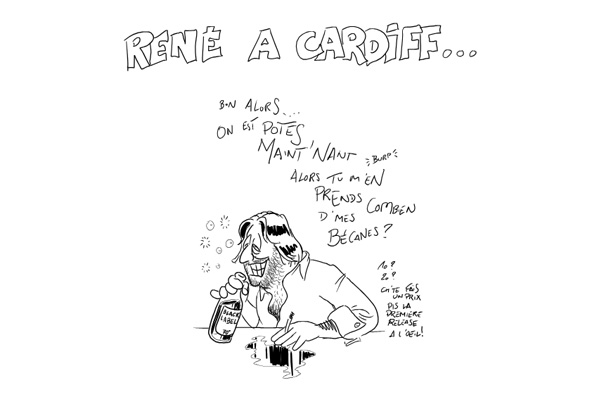 RENÉ A CARDIFF...
BON ALORS....
ON EST POTES
MAINT'NANT
BURP
ALORS TU M'EN
PRENDS COMBEN
D'MES
BÉCANES?
10?
20?
CH'TE FAIS
UN PRIX
PIS LA
PREMIÈRE
RELEASE
A L'OEIL!
BLACK
LABEL